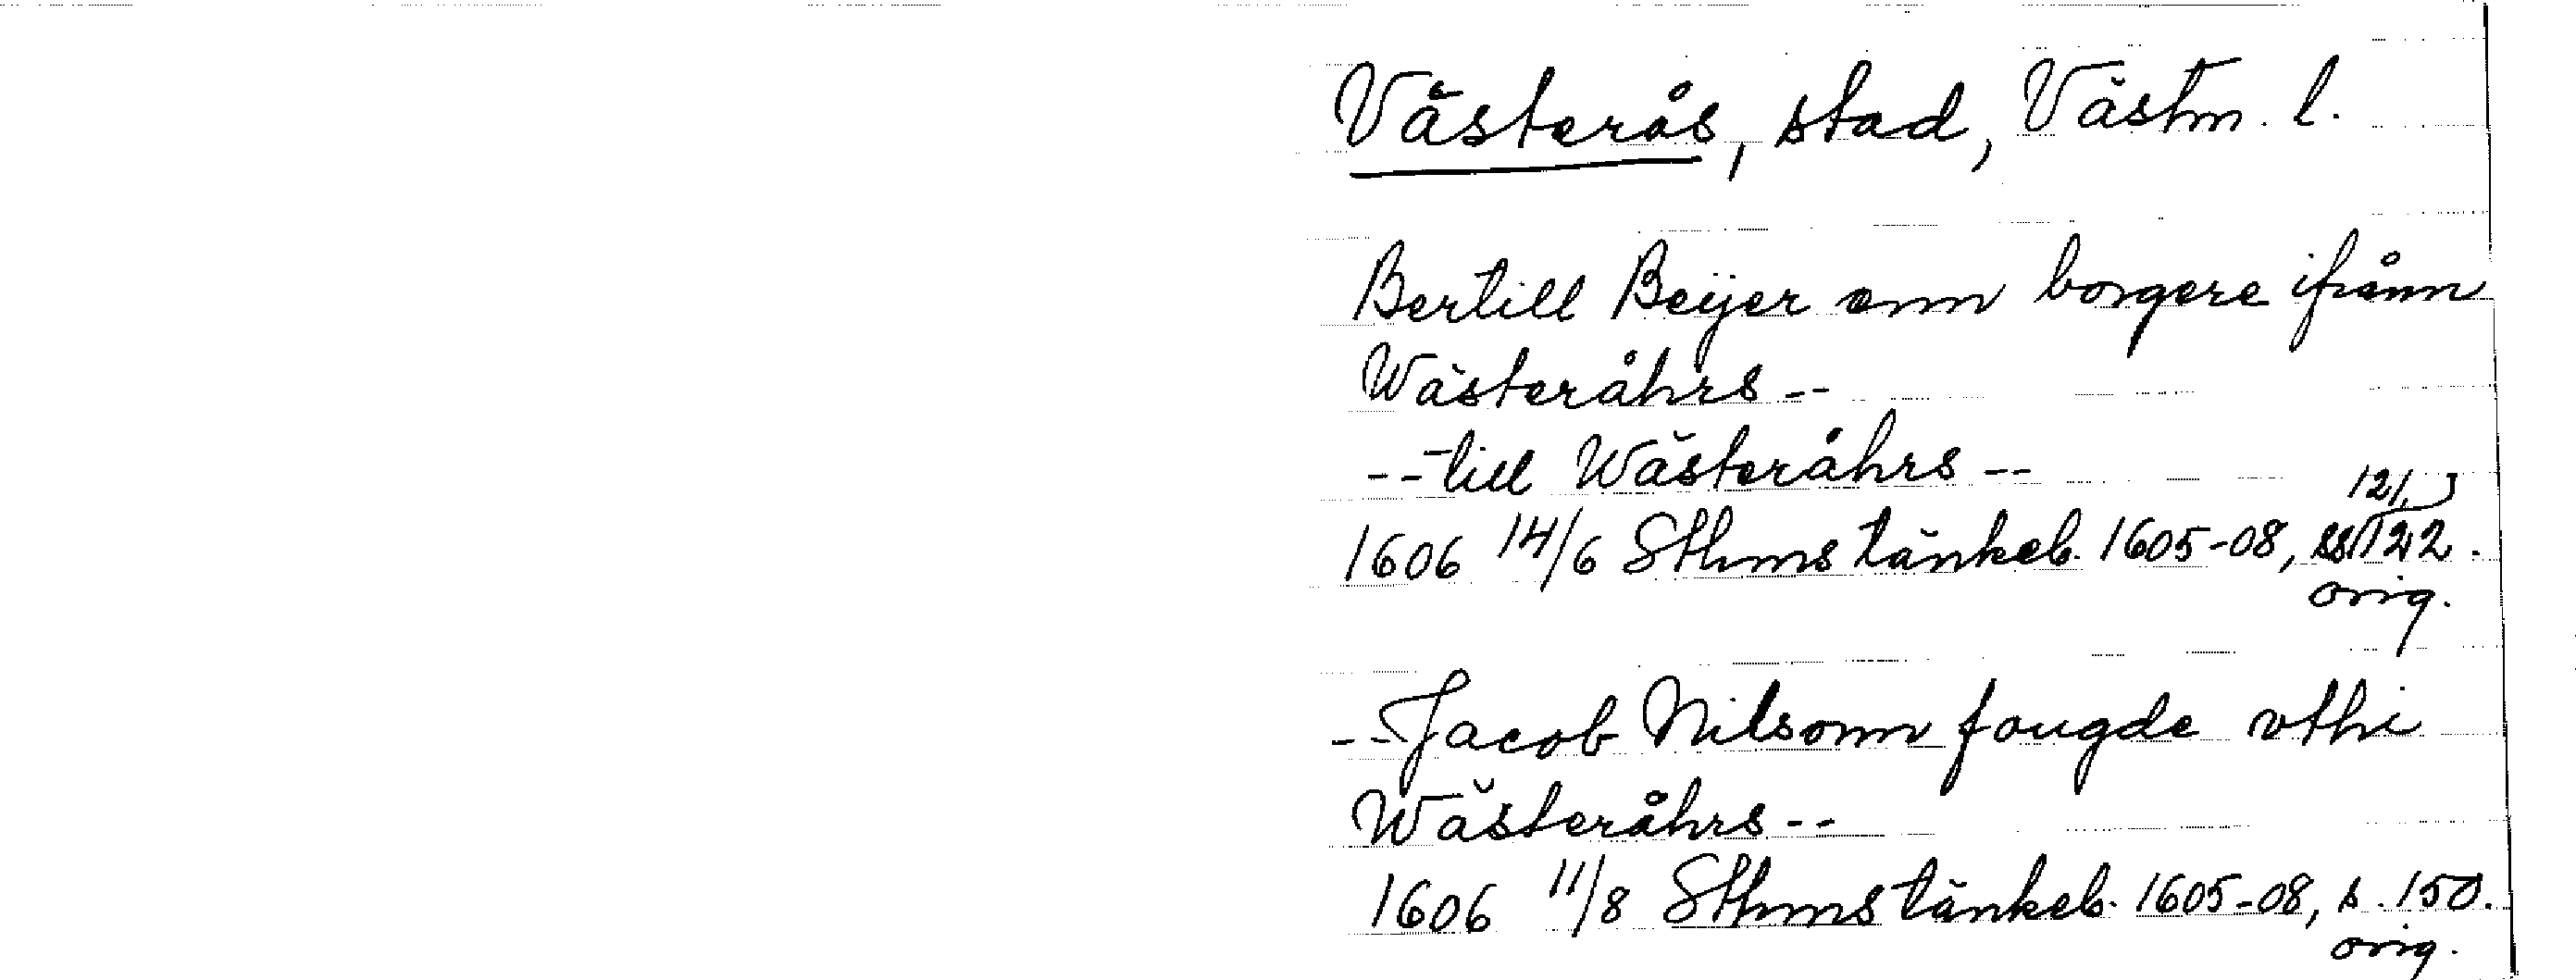 Västerås, stad, Västm. l.
Bertill Beÿer enn borgere ifrånn
Wästeråhrs --
-- till Wästeråhrs --
1606 14/6 Sthms tänkeb. 1605-08, ss 121, 122.
orig.
-- Jacob Nilsonn fougde vthi
Wästeråhrs --
1606 11/8 Sthms tänkeb. 1605-08, s. 150.
orig.